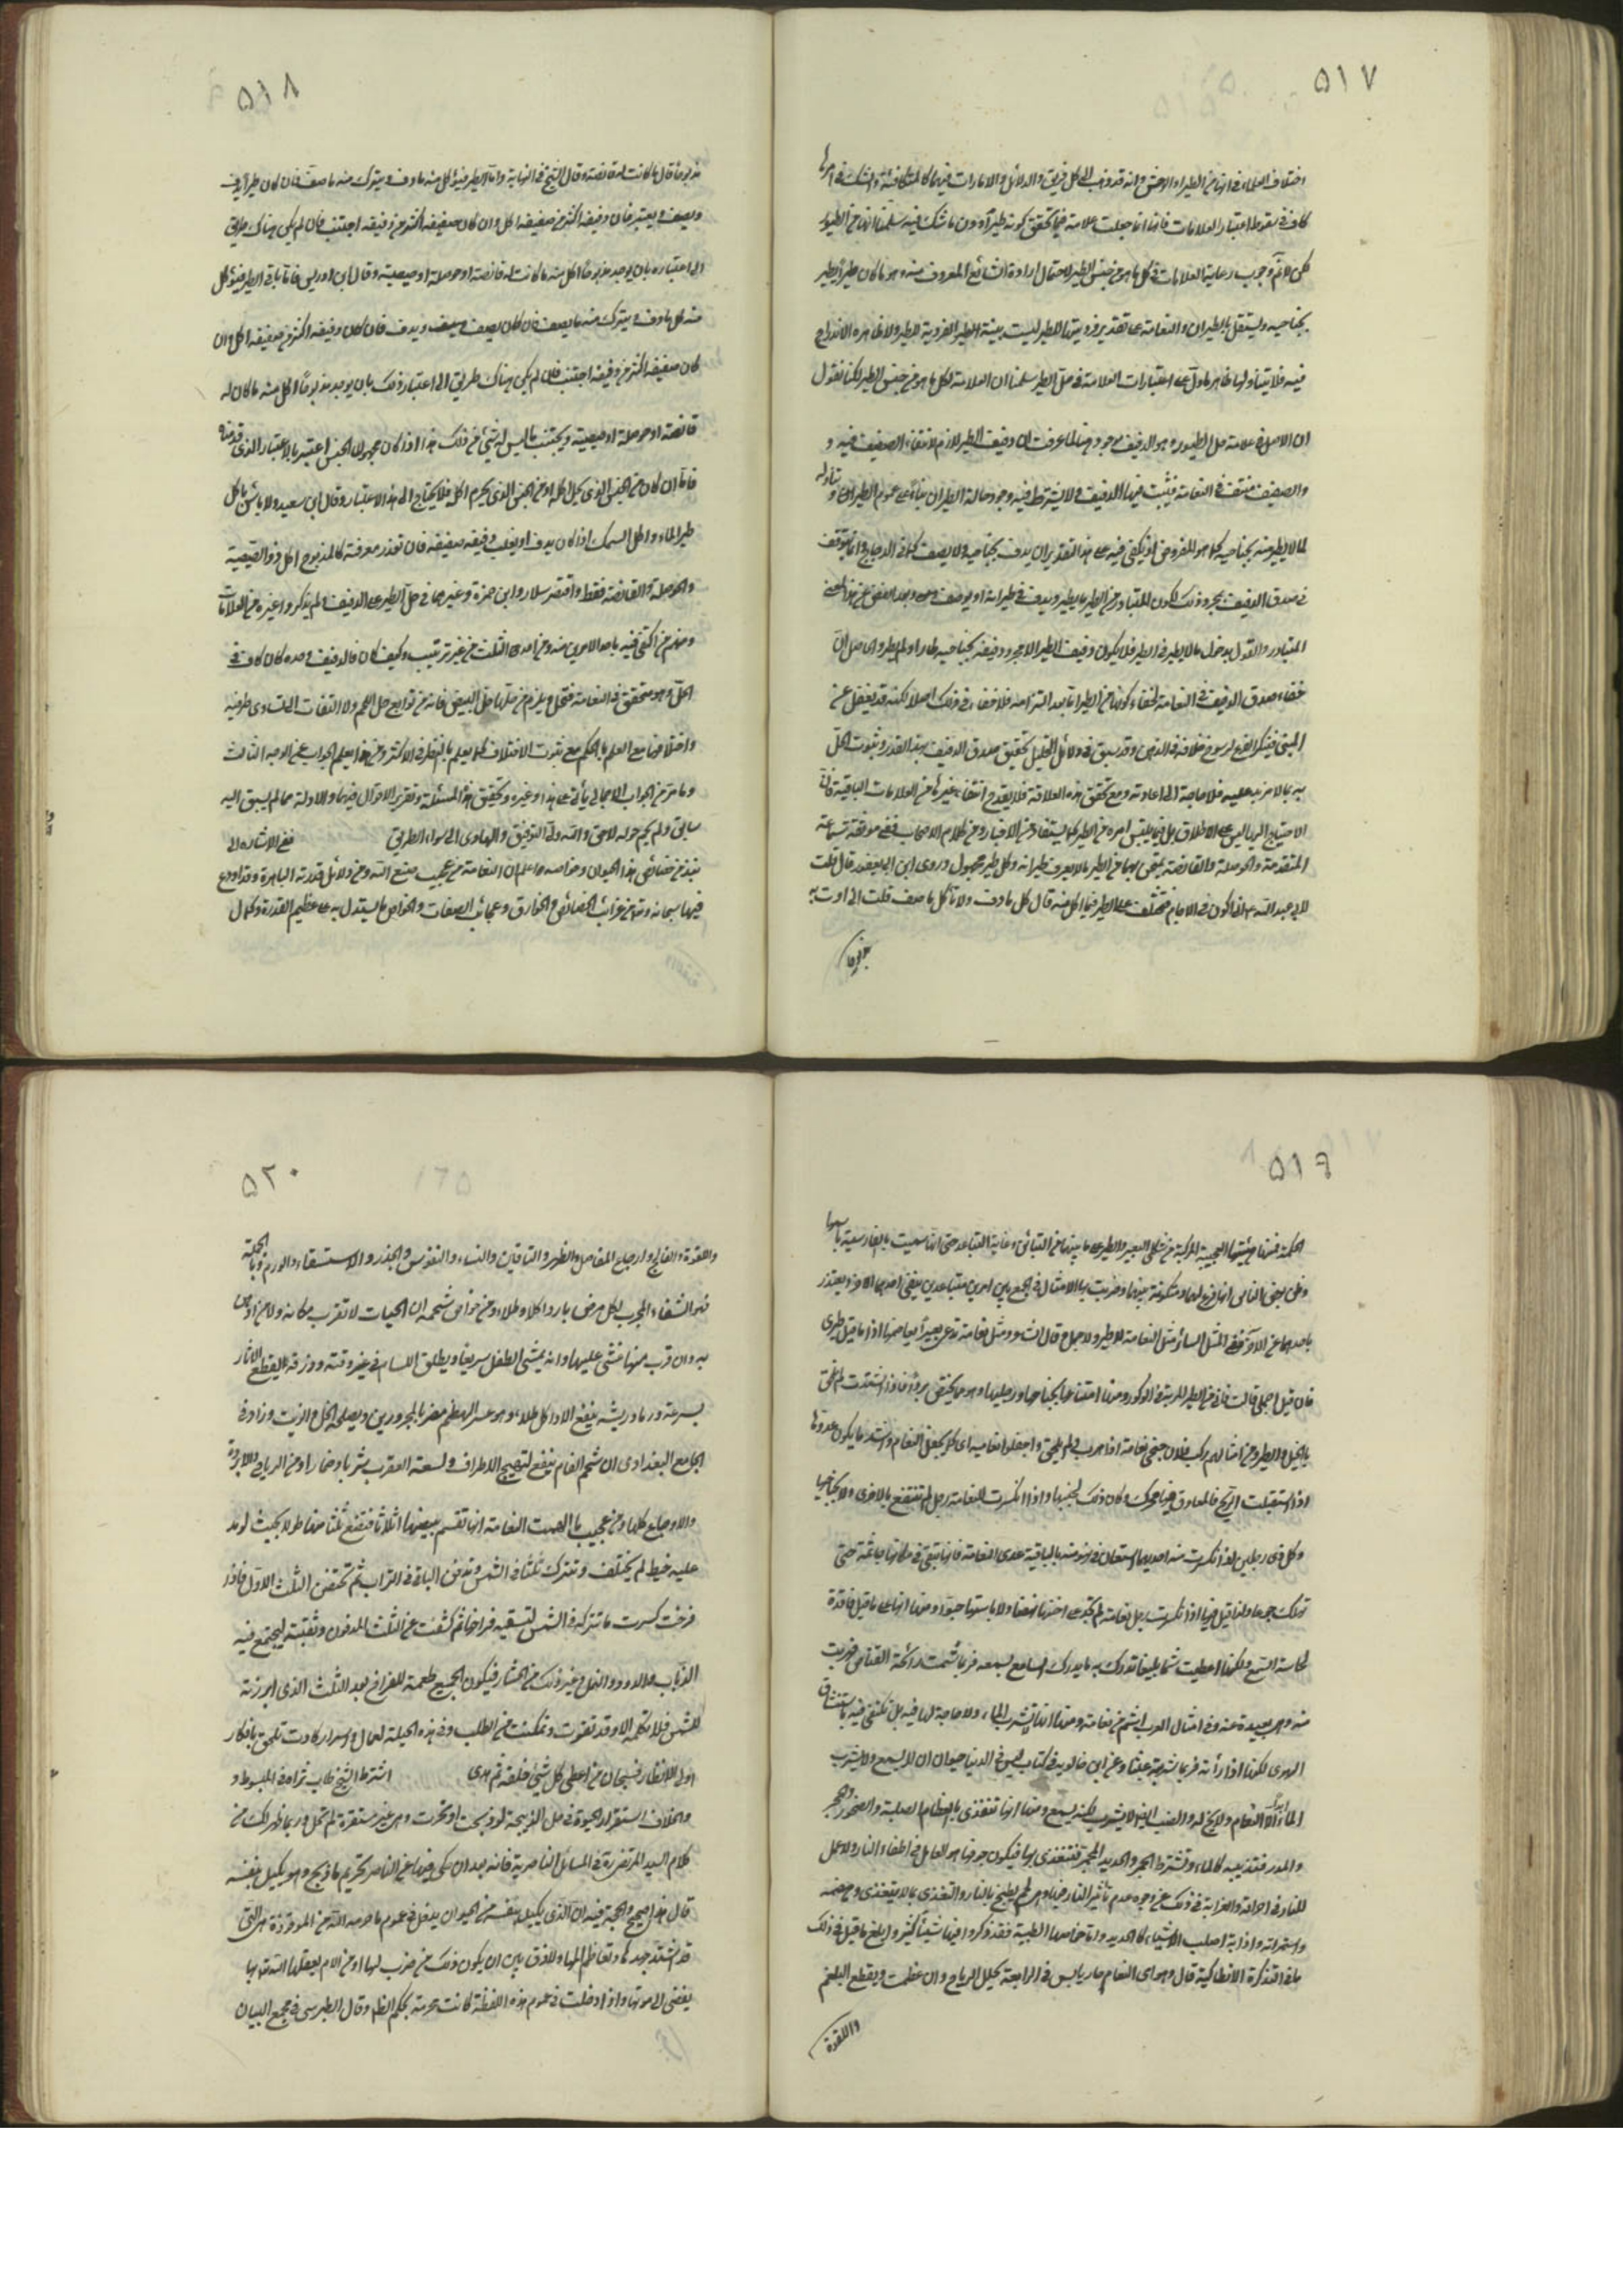 ٥١٧
اختلاف العلماء في انها من الطير او الوحش وانه قد ذهب الى كل فريق والدلائل والامارات فيهما كالمتكافئة والشك في امرها
كاف في سقوط اعتبار العلامات فانها انما جعلت علامة فيما تحقق كونه طيراً دون ما شك فيه سلمنا انها من الطيور
لكن لا نم وجوب رعاية العلامات في كل ما هو من جنس الطير لاحتمال ارادة الشائع المعروف منه وهو ما كان طيراً يطير
بجناحيه ويستقل بالطيران والنعامة على تقدير فرديتها للطير ليست بينة الفردية للطير ولا ظاهرة الاندراج
فيه فلا يتناولها ظاهر ما دل على اعتبارات العلامة في حل الطير سلمنا ان العلامة لكل ما هو من جنس الطير لكنا نقول
ان الاصل في علامة حل الطيور هو الدفيف وهو موجود هنا لما عرفت ان دفيف الطير لازم لانتفاء الصفيف فيه و
والصفيف منتف في النعامة فيثبت فيها الدفيف ولا يشترط فيه وجود حالة الطيران بناء على عموم الطير وتناوله
لما لا يطير منه بجناحيه كما هو المفروض اذ يكفي فيه على هذا التقدير ان يدف بجناحيه ولا يصف كما في الدجاج وانما يتوقف
في صدق الدفيف بمجرد ذلك لكون المتبادر من الطير ما يطير ويدف في طيرانه او يصف وبعد الغض عن هذا المعنى
المتبادر والقول بدخول ما لا يطير في الطير فلا يكون دفيف الطير الا مجرد دفيفه بجناحيه طار او لم يطر والحاصل ان
خفاء صدق الدفيف في النعامة لخفاء كونها من الطير اما بعد التزامه فلا خفاء في ذلك اصلا لكنه قد يغفل عن
المبنى فينكر الفرع لرسوخ خلافه في الذهن وقد سبق في دلائل التحليل تحقيق صدق الدفيف بهذا القدر وثبوت الحل
به بما لا مزيد عليه فلا حاجة الى اعادته ومع تحقق هذه العلامة فلا يقدح انتفاء غيرها من العلامات الباقية فان
الاحتياج اليها ليس على الاطلاق بل فيما يلتبس امره من الطير كما يستفاد من الاخبار ومن كلام الاصحاب ففي موثقة سماعة
المتقدمة والحوصلة والقانصة يمتحن بهما من الطير ما لا يعرف طيرانه وكل طير مجهول وروى ابن ابي يعفور قال قلت
لابي عبد الله ع اني اكون في الاجام فيختلف علي الطير فما اكل منه قال كل ما دف ولا تأكل ما صف قلت اني اوتى به
مذبوحا
٥١٨
مذبوحا قال ما كانت له قانصة وقال الشيخ في النهاية واما الطير فيؤكل منه ما دف ويترك منه ما صف فان كان طيراً يدف
ويصف يعتبر فان دفيفه اكثر من صفيفه اكل وان كان صفيفه اكثر من دفيفه اجتنب فان لم يكن هناك طريق
الى اعتباره بان يوجد مذبوحاً اكل منه ما كانت له قانصة او حوصلة او صيصية وقال ابن ادريس فاما باقي الطير فيؤكل
منه كل ما دف ويترك منه ما يصف فان كان يصف ويدف فان كان دفيفه اكثر من صفيفه اكل وان
كان صفيفه اكثر من دفيفه اجتنب فان لم يكن هناك طريق الى اعتبار ذلك بان يوجد مذبوحاً اكل منه ما كان له
قانصة او حوصلة او صيصية ويجتنب ما ليس له شئ من ذلك هذا اذا كان مجهول الجنس اعتبر بالاعتبار الذي قدمناه
فاما ان كان من الجنس الذي يحل اكله او من الجنس الذي يحرم اكله فلا يحتاج الى هذا الاعتبار وقال ابن سعيد ولا بأس باكل
طير الماء وان اكل السمك اذا كان يدف او يغلب دفيفه صفيفه فان تعذر معرفته كالمذبوح اكل ذو الصيصية
والحوصلة والقانصة فقط واقتصر سلار وابن حمزة وغيرهما في حل الطير على الدفيف ولم يذكروا غيره من العلامات
ومنهم من اكتفى فيه باحد الامرين منه ومن احدى الثلث من غير ترتيب وكيف كان فالدفيف وحده كان كاف في
الحل وهو متحقق في النعامة فتحل ويلزم من حلها حل البيض فانه من توابع حل اللحم ولا التفات الى تساوي طرفيه
واختلافهما مع العلم بالحكم مع ثبوت الاختلاف كما يعلم بالنظر في الاكثر ومن هذا يعلم الجواب عن الوجه الثالث
وما مر من الجواب الاجمالي يأتي على هذا وغيره وتحقيق هذه المسئلة وتقرير الاقوال فيها والادلة مما لم يسبق اليه
سابق ولم يحم حوله لاحق والله ولي التوفيق والهادي الى سواء الطريق في الاشارة الى
نبذ من خصائص هذا الحيوان وخواصه اعلم ان النعامة من عجيب صنع الله ومن دلائل قدرته الباهرة وقد اودع
فيها سبحانه وتعالى من غرائب الخصائص والخوارق وعجائب الصفات والخواص ما يستدل به على عظيم القدرة وكمال
٥١٩
الحكمة فمنها هيئتها العجيبة المركبة من شكلي البعير والطير على ما بينهما من التباين وغاية التباعد حتى انها سميت بالفارسية باسمهما
وظن بعض الناس انها فرع لهما ومتكونة بينهما وضربت بها الامثال في الجمع بين امرين متباعدين ينفى احدهما الاخر ويعتذر
باحدهما عن الاخر ففي المثل السائر مثل النعامة لا طير ولا جمل وقال الشاعر ومثل نعامة تدعى بعيراً تعاصينا اذا ما قيل طيري
فان قيل احملي قالت فاني من الطير المربة في الوكور ومنها استعانتها بجناحيها ورجليها وهو ما يختص بها فاذا اشتدت لم تلحق
بالخيل والطير ومن امثالهم ركب فلان جناحي نعامة اذا هرب فلم يلحق واجفلوا نعامية اي كما يجفل النعام واشد ما يكون عدوها
اذا استقبلت الريح وكان ذلك بجنبيها واذا انكسرت للنعامة رجل لم تنتفع بالاخرى ولا بجناحيها
وكل ذي رجلين اذا انكسرت منه احديهما استعان في نهوضه بالباقية عدى النعامة فانها تبقى في مكانها جاثمة حتى
تهلك جوعا ولذا قيل فيها اذا انكسرت رجل نعامة لم تجد على اختها نهضا ولا باستها حبوا ومنها انها على ما قيل فاقدة
لحاسة السمع ولكنها اعطيت شما بليغا تدرك به ما يدرك السامع بسمعه فربما شمت رائحة القناص من
منه وهي بعيدة عنه وفي امثال العرب اشم من نعامة ومنها انها لا تشرب الماء ولا حاجة لها فيه بل تكتفي فيه باستنشاق
الهوى لكنها اذا رأته فربما شربته عبثا وعن ابن خالويه في كتاب ليس في الدنيا حيوان لا يسمع ولا يشرب
الماء ابداً الا النعام ولا مخ له والضب ايضا لا يشرب لكنه يسمع ومنها انها تتغذى بالعظام الصلبة والصخور والحجر
والمدر فتذيبه كالماء وتسترط الجمر والحديد المحمى فتتغذى بها فيكون جوفها هو العامل في اطفاء النار ولا عمل
للنار في احراقه والغرابة في ذلك من وجوه عدم تأثير النار فيها وهي لحم يطبخ بالنار والتغذي بما لا يتغذى به وهضمه
واستمرائه واذابة اصلب الاشياء كالحديد واما خواصها الطبية فقد ذكروا فيها شيئاً كثيراً وابلغ ما قيل في ذلك
ما في التذكرة الانطاكية قال وهو اي النعام حار يابس في الرابعة يحلل الرياح وان عظمت ويقطع البلغم
واللقوة
٥٢٠
واللقوة والفالج واوجاع المفاصل والظهر والساقين والنساء والنقرس والخدر والاستسقاء والورم وبالجملة
فهو الشفاء المجرب لكل مرض بارد اكلا وطلاء ومن خواص شحمه ان الحيات لا تقرب مكانه ولا من ادهن
به وان قرب منها غشى عليها وانه يمشي الطفل سريعا ويطلق اللسان في غير وقته وذرقه يقطع الاثار
بسرعة ورماد ريشه ينفع الاواكل طلاء وهو عسر الهضم مضر بالمحرورين ويصلحه الخل والزيت وزاد في
الجامع البغدادي ان شحم النعام ينفع لتهيج الاطراف ولسعة العقرب شربا وضمادا ومن الرياح الباردة
والاوجاع كلها ومن عجيب ما الهمت النعامة انها تقسم بيضها اثلاثا فتضع ثلثا منها طولا بحيث لو مد
عليه خيط لم يختلف وتترك ثلثا في الشمس وتدفن الباقي في التراب ثم تحتضن الثلث الاول فاذا
فرخت كسرت ما تتركه في الشمس لتسقيه فراخها ثم كشفت عن الثلث المدفون وثقبته ليجتمع فيه
الذباب والدود والنمل وغير ذلك من الحشار فيكون الجميع طعمة للفراخ بعد الثلث الذي ابرزته
للشمس فلا تكمله الا وقد تقوت وتمكنت من الطلب وفي هذه الحيلة لعمال واسرار كادت تلحق بافكار
اولى الانظار فسبحان من اعطى كل شئ خلقه ثم هدى اشترط الشيخ طاب ثراه في المبسوط و
والخلاف استقرار الحيوة في حل الذبيحة فلو ذبحت او نحرت وهي غير مستقرة لم تحل وربما ظهر ذلك من
كلام السيد المرتضى في المسائل الناصرية فانه بعد ان حكى فيها عن الناصر تحريم ما ذبح وهو يكيد بنفسه
قال هذا صحيح والحجة فيه ان الذي يكيد بنفسه من الحيوان يدخل في عموم ما حرمه الله من الموقوذة هي التي
قد اشتد جهدها وتعاظم المها ولا فرق بين ان يكون ذلك من ضرب لها او من الام يعقلها الله تعالى بها
يفضي الى موتها واذا دخلت في عموم هذه اللفظة كانت محرمة بحكم الظاهر وقال الطبرسي في مجمع البيان